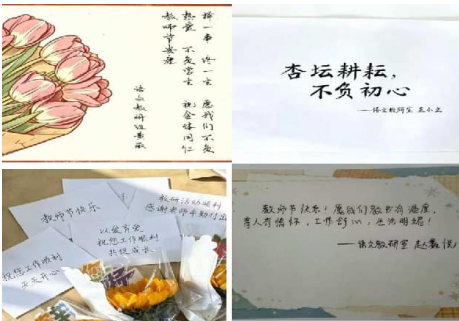 择一事 终一生 愿我们不负
热爱 不负学生 祝全体同仁
教师节快乐
语文教研组敬
杏坛耕耘，
不负初心
——语文教研室 王小立
教师节快乐
教研活动顺利
感谢老师辛勤付出
以爱育爱
祝您工作顺利
共促成长
祝您工作顺利
天天开心
教师节快乐！愿我们教书有温度，
育人有情怀，工作舒心，生活明媚！
——语文教研室 赵